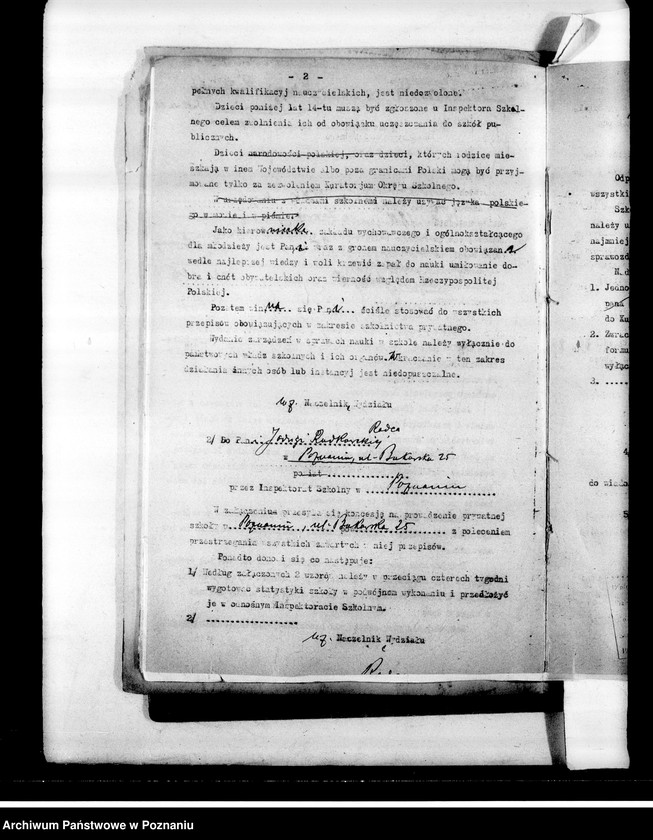 - 2 -
pełnych kwalifikacyj nauczycielskich, jest niedozwolone.
Dzieci poniżej lat 14-tu muszą być zgłoszone u Inspektora Szkol-
nego celem zwolnienia ich od obowiązku uczęszczania do szkół pu-
blicznych.
Dzieci narodowości polskiej, oraz dzieci, których rodzice mie-
szkają w innem Województwie albo poza granicami Polski mogą być przyj-
mowane tylko za zezwoleniem Kuratorjum Okręgu Szkolnego.
W urzędowaniu z władzami szkolnemi należy używać języka polskie-
go w mowie i w piśmie.
Jako kierowniczka.. zakładu wychowawczego i ogólnokształcącego
dla młodzieży jest Pan.i wraz z gronem nauczycielskiem obowiązana
wedle najlepszej wiedzy i woli krzewić zapał do nauki umiłowanie do-
bra i cnót obywatelskich oraz wierność względem Rzeczypospolitej
Polskiej.
Pozatem winna... się Pani... ściśle stosować do wszystkich
przepisów obowiązujących w zakresie szkolnictwa prywatnego.
Wydanie zarządzeń w sprawach nauki w szkole należy wyłącznie do
państwowych władz szkolnych i ich organów. Wkraczanie w ten zakres
działania innych osób lub instancyj jest niedopuszczalne.
wz. Naczelnik Wydziału
Radca
2/ Do Pani Radkowskiej
w Poznaniu, ul. Bukerska 25
powiat
przez Inspektorat Szkolny w Poznaniu
W załączeniu przesyła się koncesję na prowadzenie prywatnej
szkoły w Poznaniu, ul. Bukerska 25 z poleceniem
przestrzegania wszystkich zawartych w niej przepisów.
Ponadto donosi się co następuje:
1/ Według załączonych 2 wzorów należy w przeciągu czterech tygodni
wygotować statystyki szkoły w podwójnem wykonaniu i przedłożyć
je w odnośnym Inspektoracie Szkolnym.
2/ ..................
wz. Naczelnik Wydziału
Odp
wszystki
Szk
należy u
najmniej
sprawozd
Nad
1. Jedno
pana
do Ku
2. Zwrac
formu
wyłąc
3. .....
4.
do wiado
5.
Archiwum Państwowe w Poznaniu